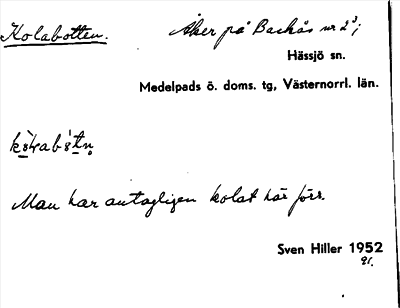 Kolabotten.
Åker på Backås nr 2³;
Hässjö sn.
Medelpads ö. doms. tg, Västernorrl. län.
Man har antagligen kolat här förr.
Sven Hiller 1952